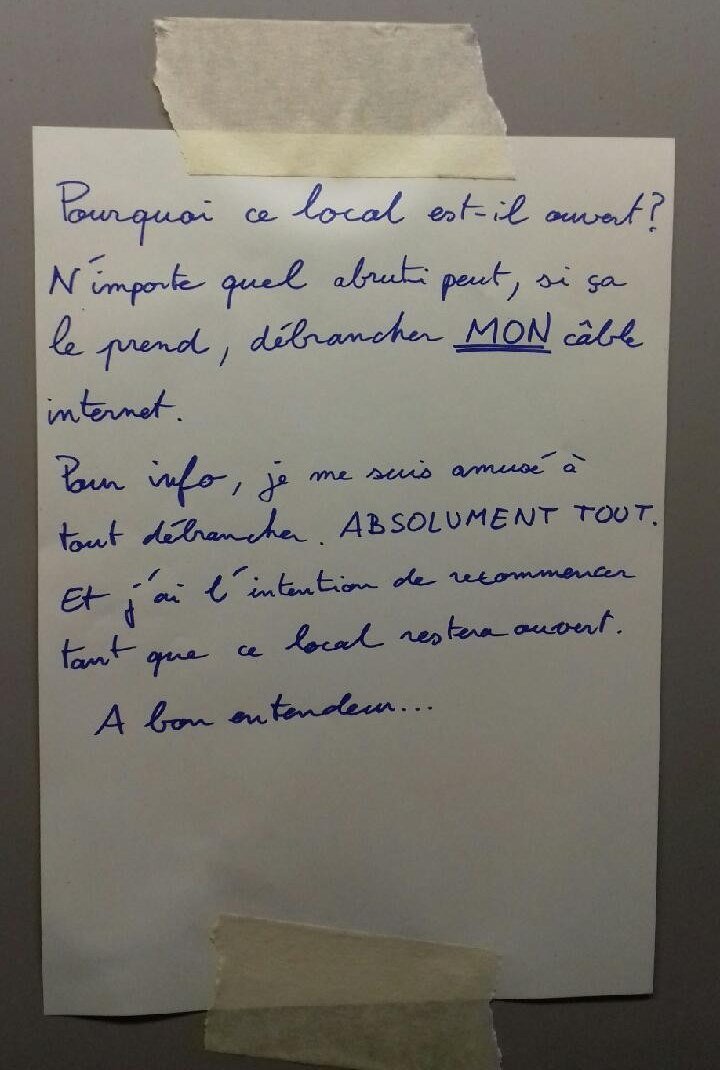 Pourquoi ce local est-il ouvert?
N'importe quel abruti peut, si ça
le prend, débrancher MON câble
internet.
Pour info, je me suis amusé à
tout débrancher. ABSOLUMENT TOUT.
Et j'ai l'intention de recommencer
tant que ce local restera ouvert.
A bon entendeur...